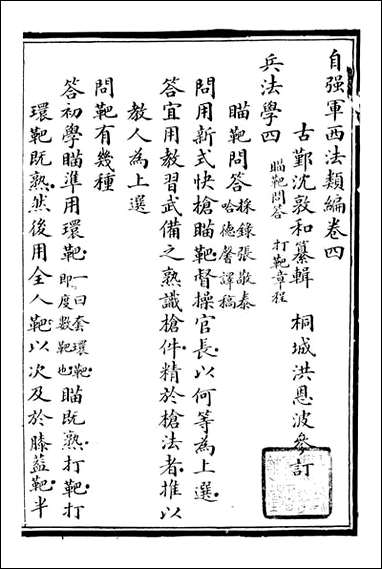 自强軍西法類編卷四
古鄞沈敦和纂輯 桐城洪恩波參訂
兵法學四 瞄靶問答 打靶章程
瞄靶問答 採錄張敬泰 哈德馨譯稿
問用新式快槍瞄靶督操官長以何等為上選
答宜用教習武備之熟識槍件精於槍法者推以
教人為上選
問靶有幾種
答初學瞄準用環靶一曰套環靶即度數靶也瞄既熟打靶打
環靶既熟然後用全人靶以次及於膝蓋靶半